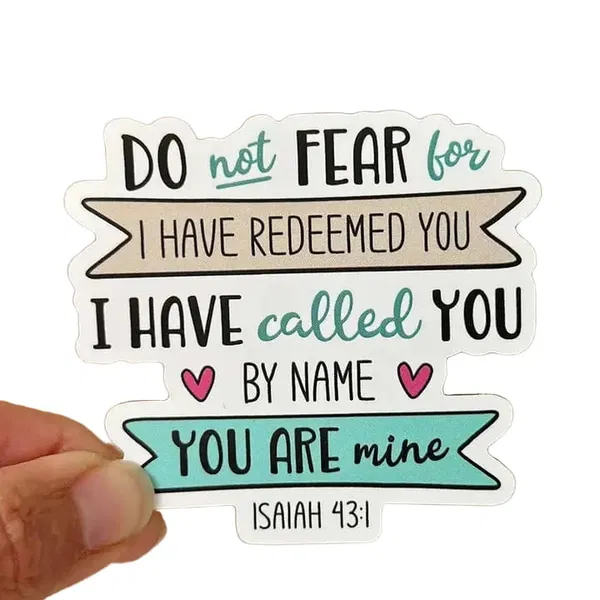 DO not FEAR for
I HAVE REDEEMED YOU
I HAVE called YOU
BY NAME
YOU ARE mine
ISAIAH 43:1